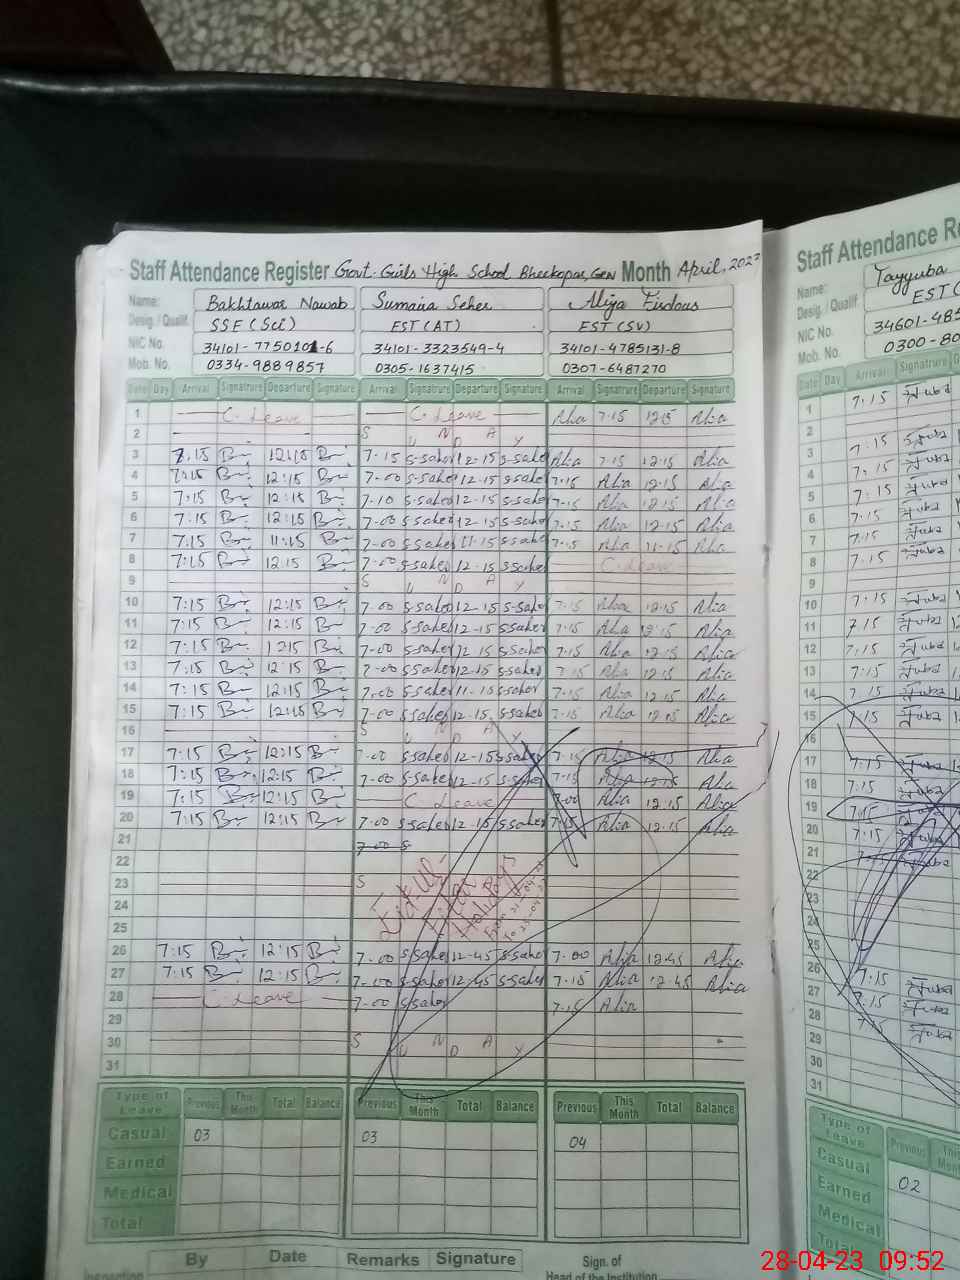 Staff Attendance Register Govt. Girls High School Bheekopur, GRW Month April, 2023
Name: Bakhtawar Nawab Sumaira Seher Aliya Firdous
Desig. / Qualif. SSE (Sci) EST (AT) EST (SV)
NIC No. 34101-3323549-4 34101-4785131-8
Mob. No. 0334-9889857 0305-1637415 0307-6487270
Date Day Arrival Signature Departure Signature Arrival Signature Departure Signature Arrival Signature Departure Signature
1 C. Leave C. Leave Alia 7.15 12.15 Alia
2 S U N D A Y
3 7.15 12:15 7-15 S-saher 12-15 S-saher Alia 7.15 12.15 Alia
4 7:15 12:15 7-00 S-saher 12-15 S-saher 7.15 Alia 12.15 Alia
5 7:15 12:15 7-10 S-saher 12-15 S-saher 7.15 Alia 12.15 Alia
6 7:15 12:15 7-00 S-saher 12-15 S-saher 7.15 Alia 12.15 Alia
7 7:15 11:15 7-00 S-saher 11-15 S-saher 7.15 Alia 11-15 Alia
8 7:15 12:15 7-00 S-saher 12-15 S-saher C. Leave
9 S U N D A Y
10 7:15 12:15 7-00 S-saher 12-15 S-saher 7.15 Alia 12.15 Alia
11 7:15 12:15 7-00 S-saher 12-15 S-saher 7.15 Alia 12.15 Alia
12 7:15 12:15 7-00 S-saher 12-15 S-saher 7.15 Alia 12.15 Alia
13 7:15 12:15 7-00 S-saher 12-15 S-saher 7.15 Alia 12.15 Alia
14 7:15 12:15 7-00 S-saher 11-15 S-saher 7.15 Alia 12.15 Alia
15 7:15 12:15 7-00 S-saher 12-15 S-saher 7.15 Alia 12.15 Alia
16 S U N D A Y
17 7:15 12:15 7-00 S-saher 12-15 S-saher 7.15 Alia 12.15 Alia
18 7:15 12:15 7-00 S-saher 12-15 S-saher 7.15 Alia 12.15 Alia
19 7:15 12:15 C. Leave 7-00 Alia 12.15 Alia
20 7:15 12:15 7-00 S-saher 12-15 S-saher 7.15 Alia 12.15 Alia
21 7-00 S
22
23 S
24 Eid-ul-Fitar Holidays
25
26 7:15 12:15 7-00 S-saher 12-45 S-saher 7-00 Alia 12.45 Alia
27 7:15 12:15 7-00 S-saher 12-45 S-saher 7.15 Alia 12.45 Alia
28 C. Leave 7-00 S-saher 7.15 Alia
29
30 S U N D A Y
31
Type of Leave Previous This Month Total Balance Previous This Month Total Balance Previous This Month Total Balance
Casual 03 03 04
Earned
Medical
Total
By Date Remarks Signature Sign. of
Head of the Institution
Staff Attendance Re
Name: Tayyuba
Desig. / Qualif. EST (
NIC No. 34601-485
Mob. No. 0300-80
Date Day Arrival Signature
1 7.15
2
3 7.15
4 7.15
5 7:15
6 7.15
7 7.15
8 7.15
9
10 7.15
11 7.15
12 7.15
13 7.15
14 7.15
15 7.15
16
17 7.15
18 7.15
19 7.15
20 7.15
21
22
23
24
25
26 7.15
27 7.15
28 7.15
29
30
31
Type of Leave Previous This Month
Casual 02
Earned
Medical
Total
28-04-23 09:52